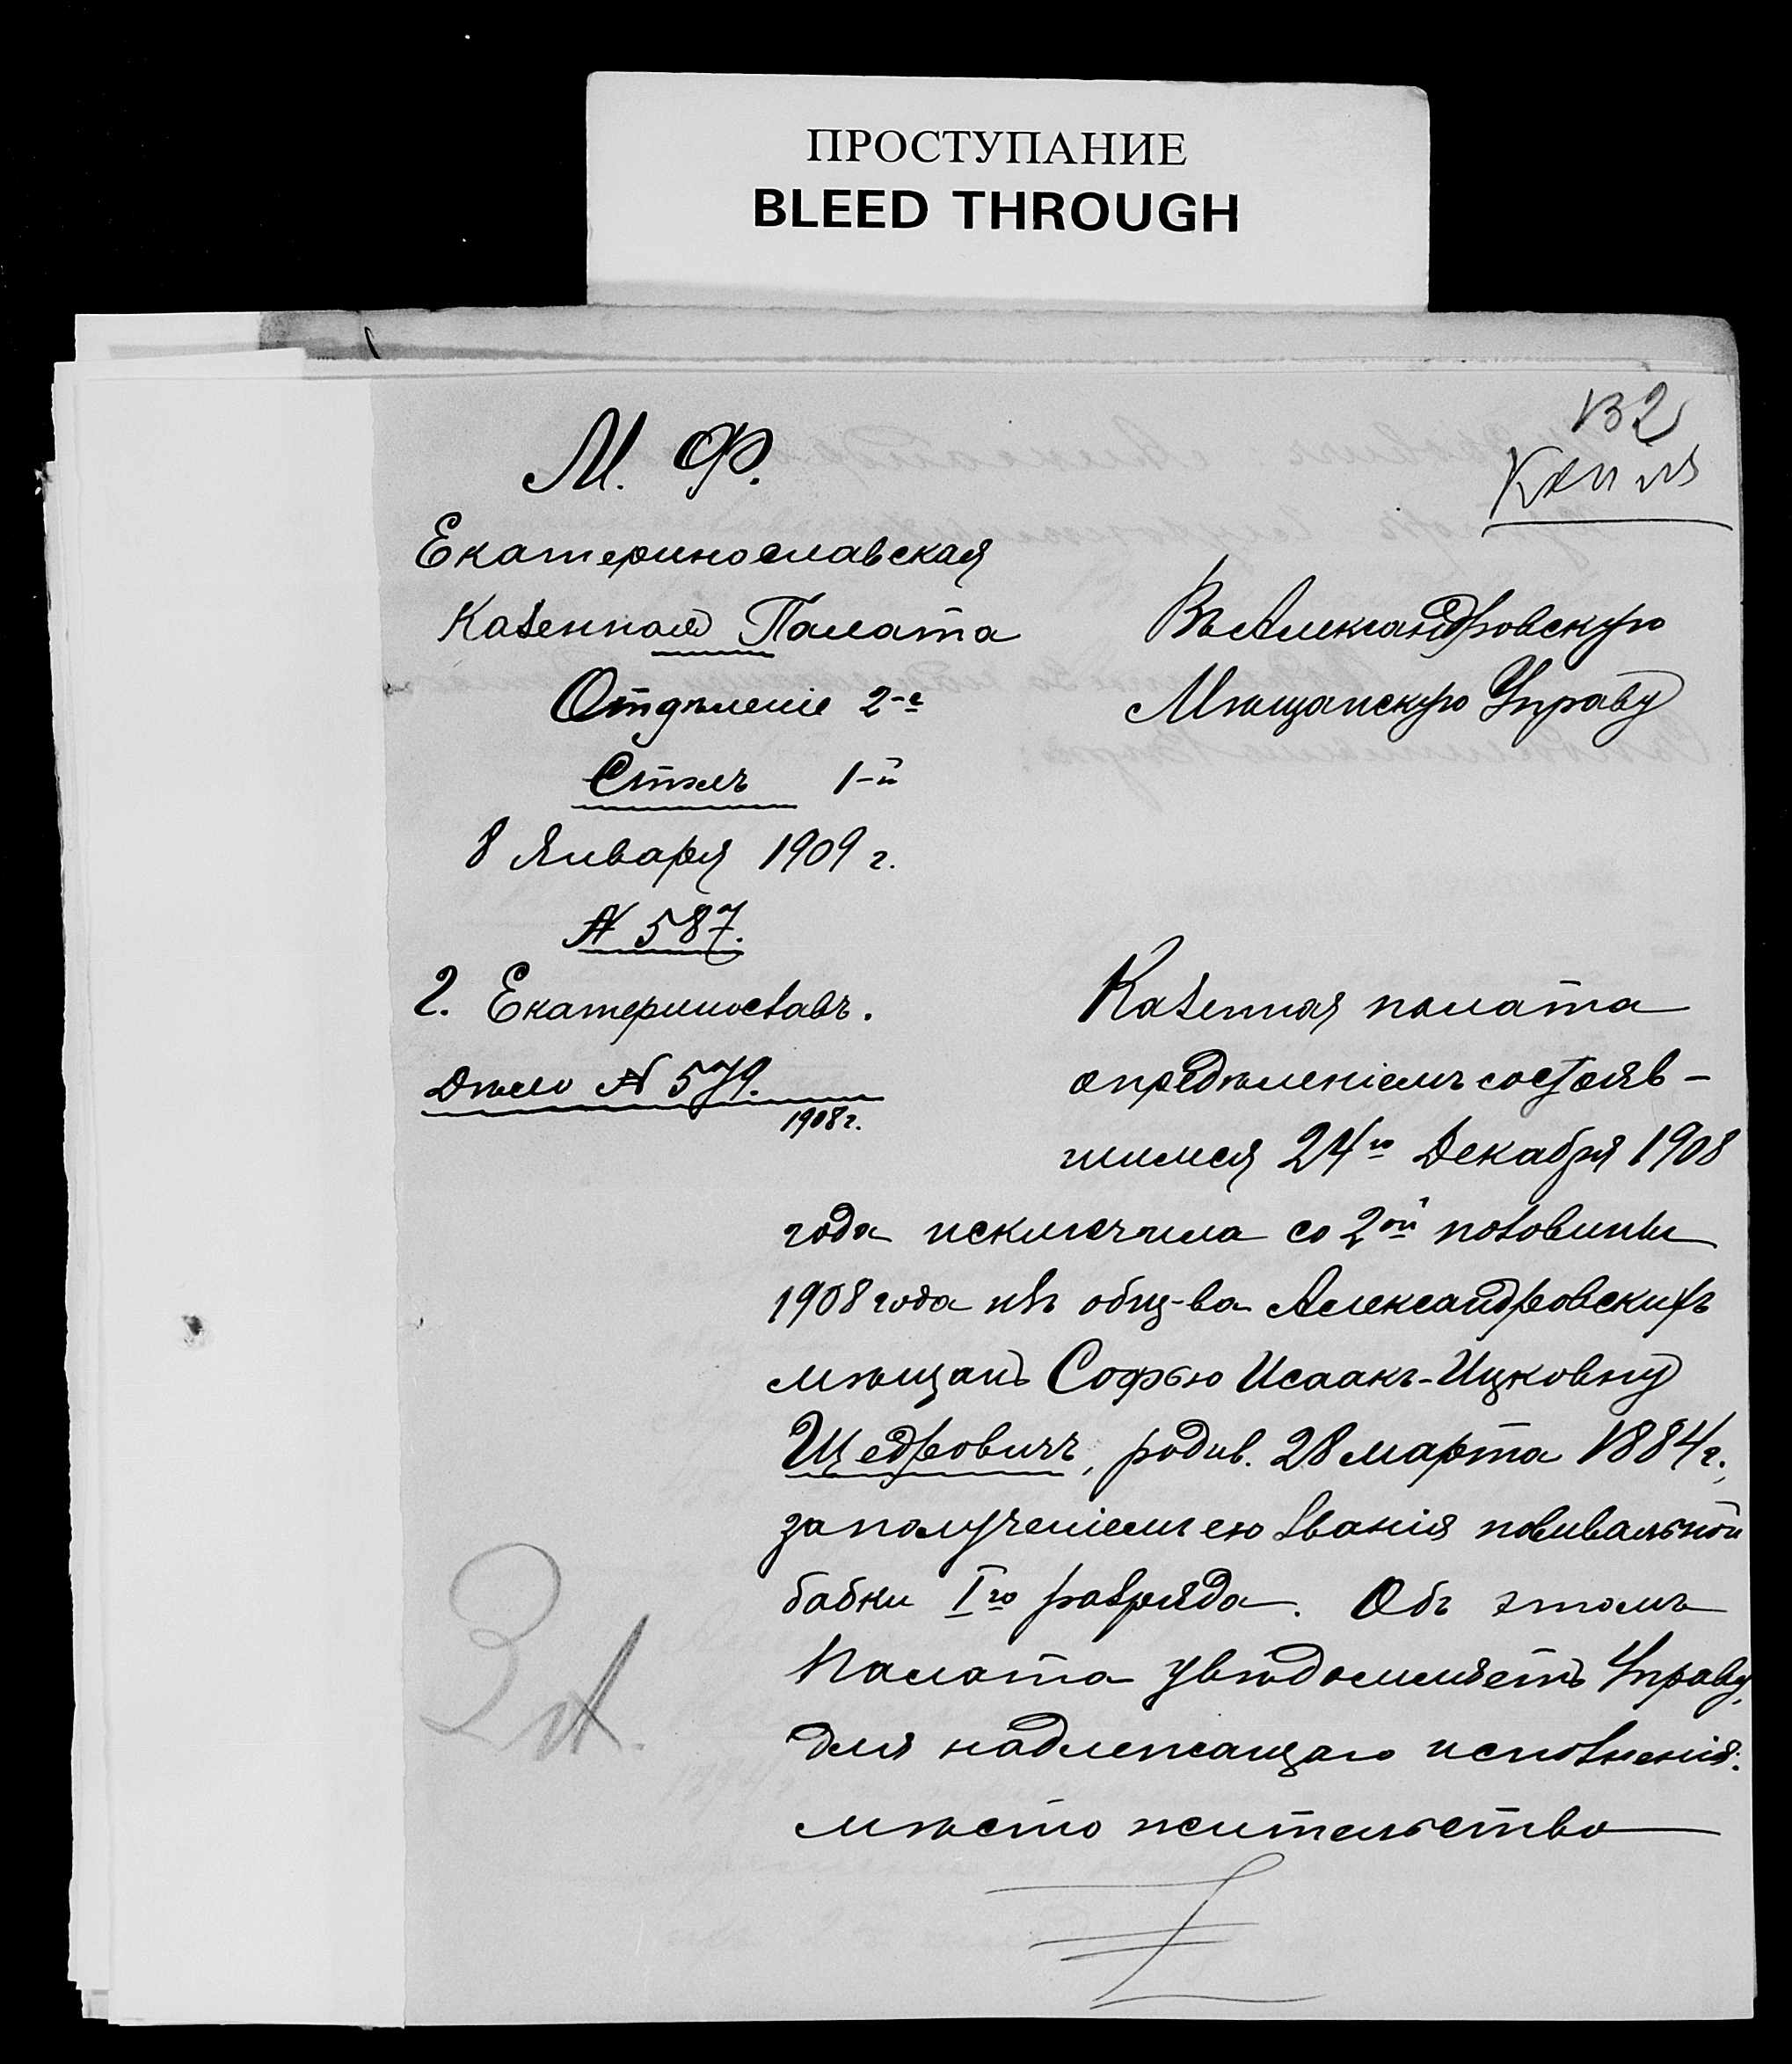 ПРОСТУПАНИЕ
BLEED THROUGH
132
Копия
М. Ф.
Екатеринославская
Казенная Палата
Отдѣленіе 2-е
Столъ 1-й
8 Января 1909 г.
№ 587.
г. Екатеринославъ.
Дѣло № 579.
1908 г.
Въ Александровскую
Мѣщанскую Управу
Казенная палата
опредѣленіемъ состояв-
шимся 24го Декабря 1908
года исключила со 2ой половины
1908 года изъ общ-ва Александровскихъ
мѣщанъ Софью Исаакъ-Ицковну
Щедровичъ, родив. 28 марта 1884 г.,
за полученіемъ ею званія повивальной
бабки Iго разряда. Объ этомъ
Палата увѣдомляетъ Управу,
для надлежащаго исполненія.
мѣсто жительства